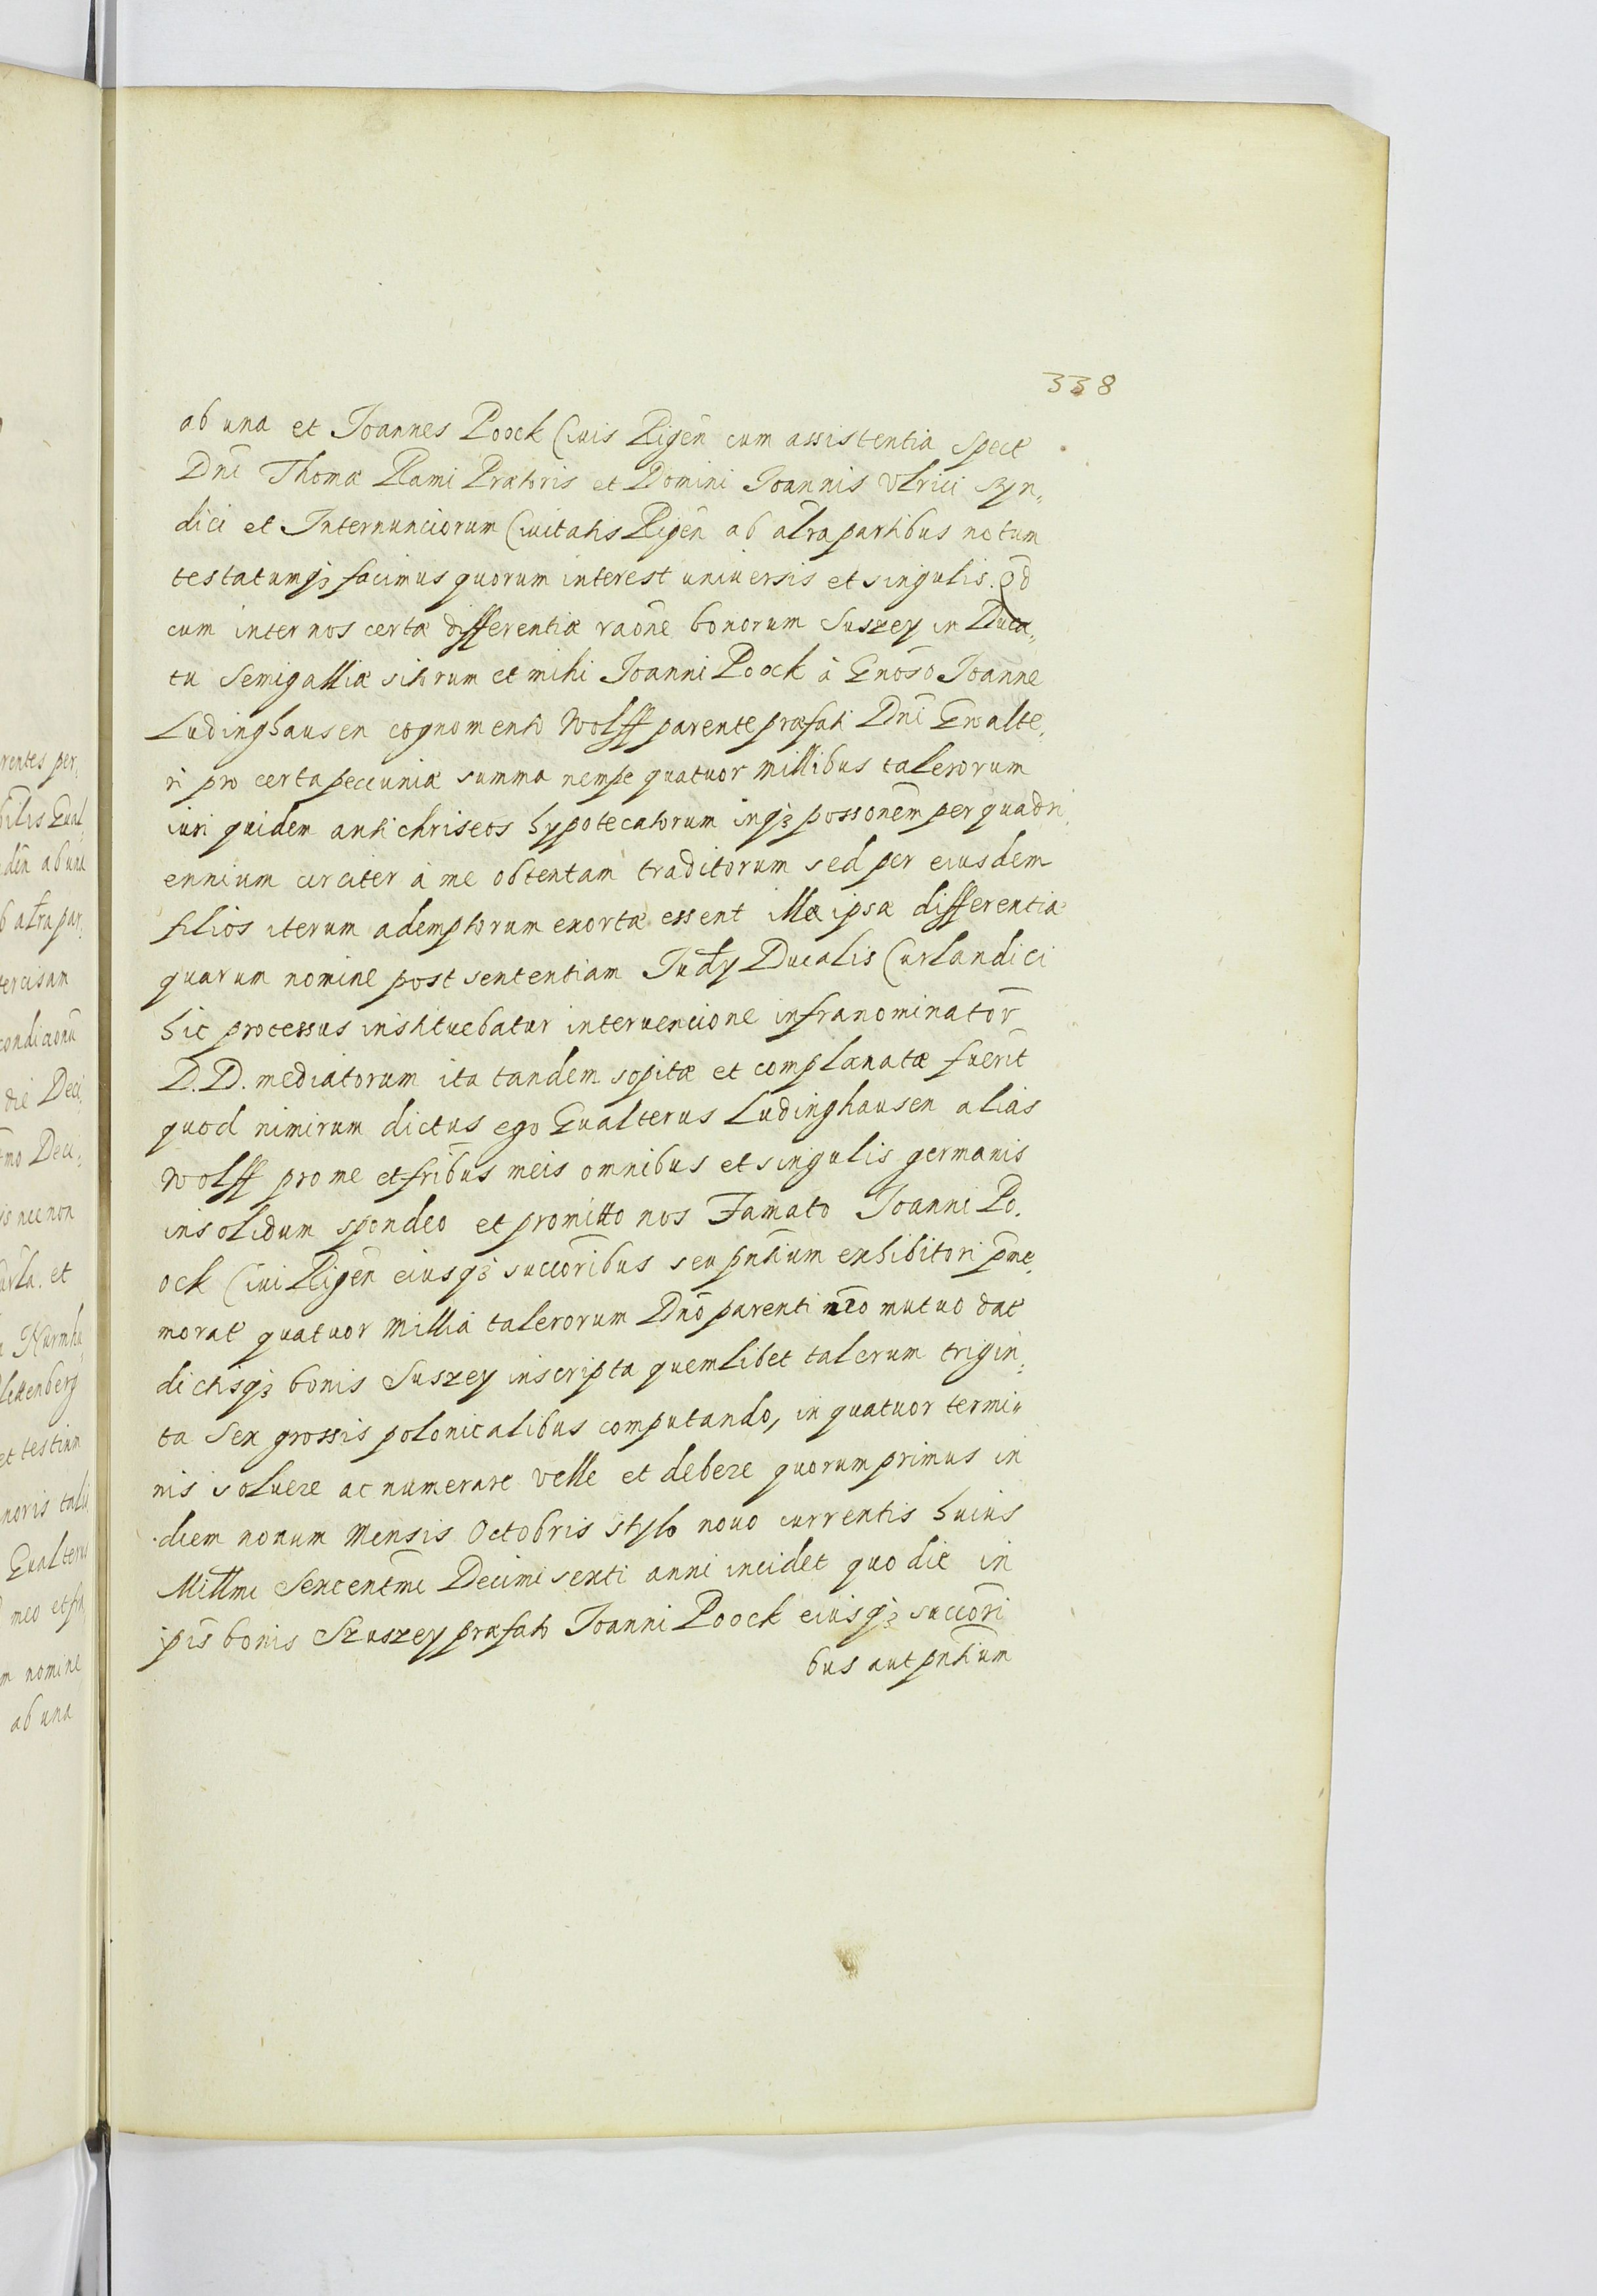 338
ab una et Joannes Poock Ciuis Rigen̄ cum assistentia Spect̄
Dnī Thomæ Rami Prætoris et Domini Joannis Vlrici Syn„
dici et Internunciorum Ciuitatis Rigen̄ ab alr̄a partibus notum
testatumqꝫ facimus quorum interest uniuersis et singulis. Qd̄
cum inter nos certæ differentiæ raōne bonorum Suszey in Duca„
tu Semigalliæ sitorum et mihi Joanni Poock à Gnōso Joanne
Ludinghausen cognomento Wolff parente præfati Dnī Ewalte„
ri pro certa peccuniæ summa nempe quatuor millibus talerorum
iuri quidem antichriseos hypotecatorum inqꝫ possonēm per quadri„
ennium circiter à me obtentam traditorum sed per eiusdem
filios iterum ademptorum exortæ essent illæ ipsæ differentiæ
quarum nomine post sententiam Judy Ducalis Curlandici
hic processus instituebatur interuencione infranominator̄
D.D. mediatorum ita tandem sopitæ et complanatæ fuerīt
quod nimirum dictus ego Eualterus Ludinghausen alias
Wolff pro me et frībus meis omnibus et singulis germanis
insolidum spondeo et promitto nos Famato Joanni Po„
ock Ciui Rigen̄ eiusqꝫ succorībus seu pntīum exhibitori pm̄e„
morat̄ quatuor millia talerorum Dnō parenti nrō mutuo dat̄
dictisqꝫ bonis Suszey inscripta quemlibet talerum trigin„
ta Sex grossis polonicalibus computando, in quatuor termi„
nis soluere ac numerare velle et debere quorum primus in
diem nonum Mensis Octobris stylo nouo currentis huius
Millmī Sexcentmī Decimi sexti anni incidet quo die in
ipīs bonis Szuszey præfato Joanni Poock eiusqꝫ succorī
bus aut pntīum
rentes per„
bilis Eual„
den̄ ab una
b alr̄a par„
tercisam
condicionū
die Deci„
mo Deci„
is nec non
et
lettenberg
et testium
noris
Eualterus
meo et
m nomine
ab una